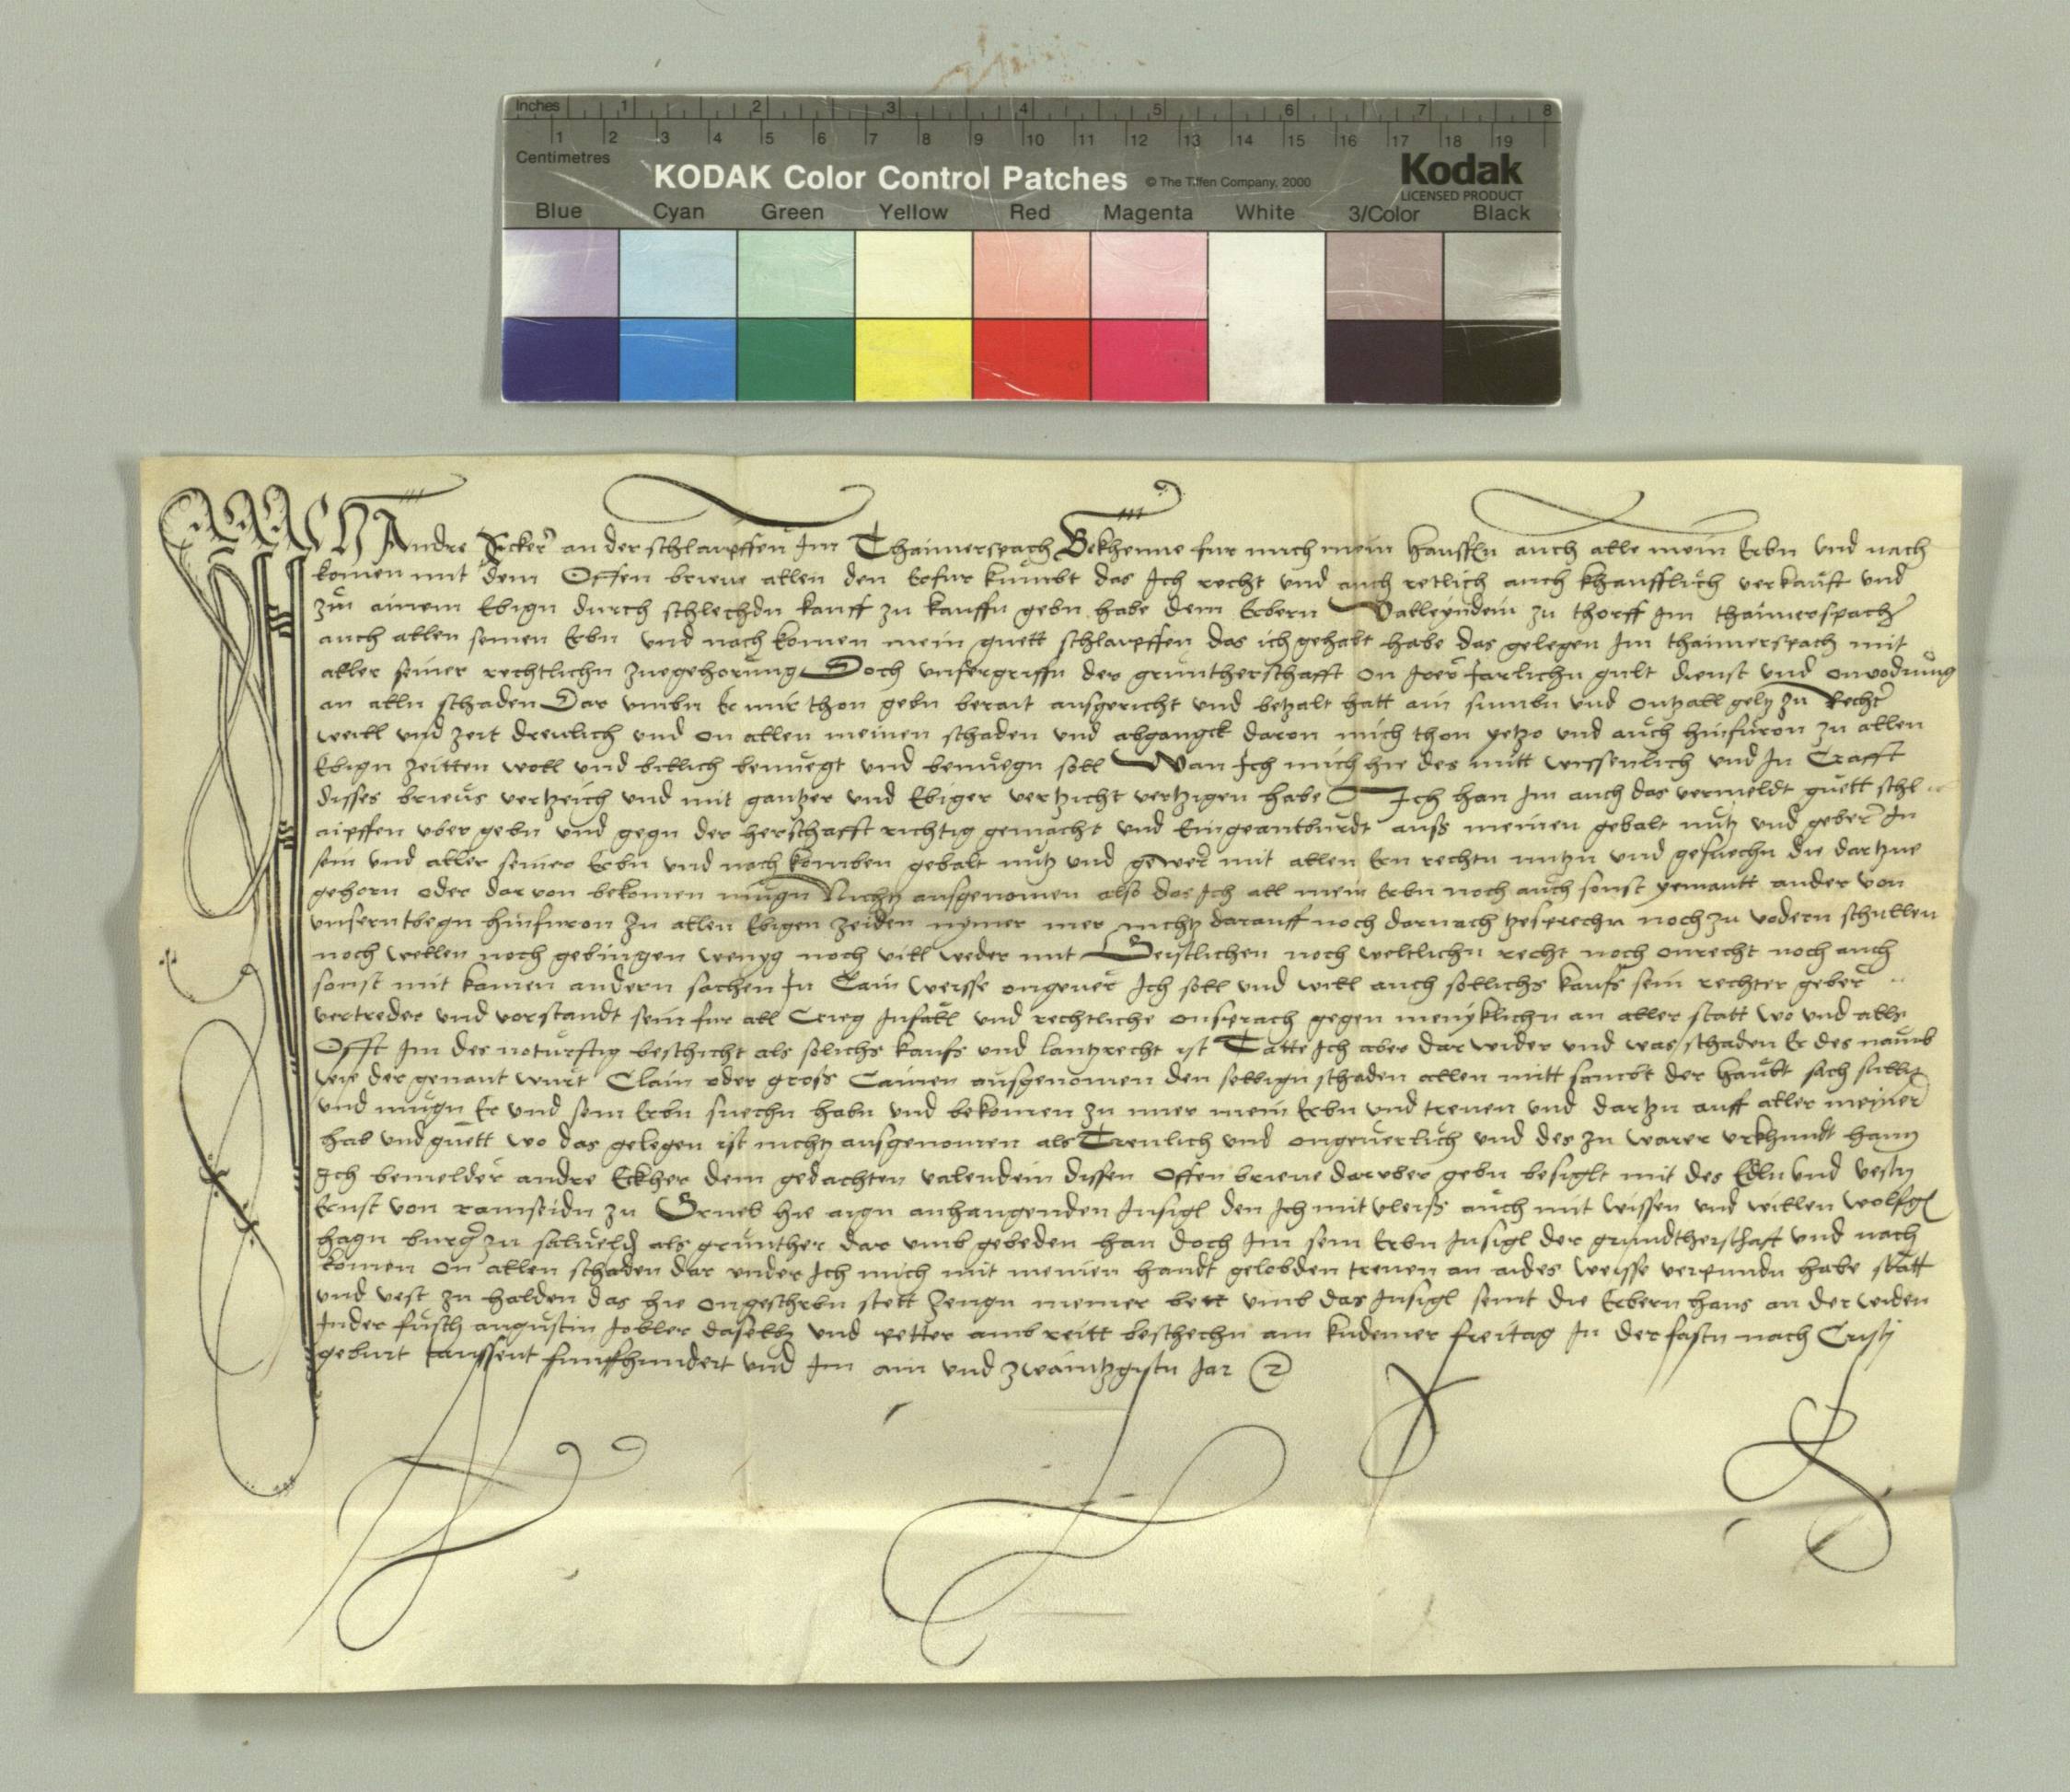 Inches 1 2 3 4 5 6 7 8
1 2 3 4 5 6 7 8 9 10 11 12 13 14 15 16 17 18 19
Centimetres
KODAK Color Control Patches © The Tiffen Company, 2000 Kodak
LICENSED PRODUCT
Blue Cyan Green Yellow Red Magenta White 3/Color Black
Ich Andre Ecker an der schlaipffen Im Thaimerspach Bekhenne fur mich mein hausfrn auch alle mein Erbn und nach
komen mit dem Offen brieve allen den Erfur kumbt das Ich recht und auch retlich auch khaufflich verkauft und
zw ainem Ebign durch schlechdn kauff zu kauffn gebn habe dem Erbern Valleyndein zu thorff Im thaimerspach
auch allen seinen Erbn und nach komen mein guett schlaipffen das ich gehabt habe das gelegen Im thaimerspach mit
aller seiner rechtlichn zuegehorung Doch unfergriffn der gruntherschafft on Irer Jarlichn gult dienst und onvodrung
an alln schaden Dar umbn Er mir thon gebn berait ausgericht und betzalt hatt ain sumbn und ontzall geltz zu Rechter
weill und zeit dreulich und on allen meinen schaden und abgangck daron mich thon yetzo und auch hinfuron zu allen
Ebign zeitten woll und billich benuegt und benuegn soll Wan Ich mich hie des mitt wissenlich und In Crafft
disses brieus vertzeich und mit gantzer und Ebiger vertzicht vertzigen habe Ich han Im auch das vermeldt guett schl
aipffen uber gebn und gegn der herschafft richtig gemacht und Eingeantburdt auss meinen gebalt nutz und geber In
sein und aller seiner Erbn und nach komben gebalt nutz und gewer mit allen Ern rechtn nutzn und gesuechn die dartzue
gehorn oder dar von bekomen mugn Nichtz ausgenomen also das Ich all mein Erbn noch auch sonst yemantt ander von
unsernt begn hinfuron zu allen Ebigen zeiden nymer mer nichtz darauff noch darnach tzesprechn noch zu vodern schullen
noch wellen noch gebingen wenyg noch vill weder mit Geistlichen noch weltlichn recht noch onrecht noch auch
sonst mit kainen andern sachen In Cain weisse ongever Ich soll und will auch sollichs kaufs sein rechter geber
vertreder und vorstandt sein fur all Crieg Infall und rechtliche onsprach gegen menyklichn an aller statt wo und alls
Offt Im des noturftig beschicht als solichs kaufs und lantzrecht ist Tatte Ich aber dar wider und was schaden Er des naub
wie der genant wurt Clain oder gross Cainen ausgenomen den selbign schaden allen mitt sambt der haubt sach sulln
und mugn Er und sein Erbn suechn habn und bekomen zu mier mein Erbn und treuen und dartzu auff aller meiner
hab und guett wo das gelegen ist nichtz ausgenomen als Treulich und ongeverlich und des zu warer urkhundt hann
Ich bemelder andre Eckher dem gedachten valendein dissen Offen brieve daruber gebn besiglt mit des Edln und vestn
Ernst von ramseidn zu Grueb hie aign anhangenden Insigl den Ich mit vleiss auch mit wissen und willen wolfgl
hagn burger zu salveldn als grunther dar umb gebeden han doch Im sein Erbn Insigl der grundtherschaft und nach
komen on allen schaden dar under Ich mich mit meinen handt gelobden treuen an aides weisse verpundn habe statt
und vest zu halden das hie ongeschrbn stett zeugn meiner bett umb das Insigl seint die Erbern hans an der weiden
Inder fusch augustin Jobler daselbs und petter ambreitt beschechn am kudemer freitag In der fastn nach Cristj
geburt taussent funffhundert und Im ain und zwaintzgistn Jar